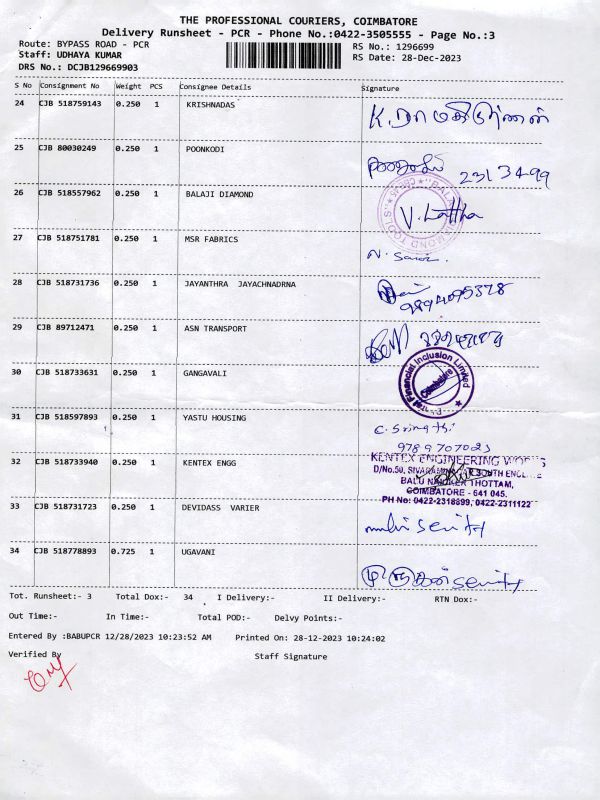 THE PROFESSIONAL COURIERS, COIMBATORE
Delivery Runsheet - PCR - Phone No.:0422-3505555 - Page No.:3
Route: BYPASS ROAD - PCR
RS No.: 1296699
Staff: UDHAYA KUMAR
RS Date: 28-Dec-2023
DRS No.: DCJB129669903
S No Consignment No Weight PCS Consignee Details Signature
24 CJB 518759143 0.250 1 KRISHNADAS
25 CJB 80030249 0.250 1 POONKODI
26 CJB 518557962 0.250 1 BALAJI DIAMOND
V. Lattha
27 CJB 518751781 0.250 1 MSR FABRICS
28 CJB 518731736 0.250 1 JAYANTHRA JAYACHNADRNA
29 CJB 89712471 0.250 1 ASN TRANSPORT
30 CJB 518733631 0.250 1 GANGAVALI
Financial Inclusion Limited
Coimbatore
31 CJB 518597893 0.250 1 YASTU HOUSING
9789707023
32 CJB 518733940 0.250 1 KENTEX ENGG
KENTEX ENGINEERING WORKS
D/No.50,
BALU NAICKER THOTTAM,
COIMBATORE - 641 045.
PH No: 0422-2318899, 0422-2311122
33 CJB 518731723 0.250 1 DEVIDASS VARIER
34 CJB 518778893 0.725 1 UGAVANI
Tot. Runsheet:- 3 Total Dox:- 34 I Delivery:- II Delivery:- RTN Dox:-
Out Time:- In Time:- Total POD:- Delvy Points:-
Entered By :BABUPCR 12/28/2023 10:23:52 AM Printed On: 28-12-2023 10:24:02
Verified By Staff Signature